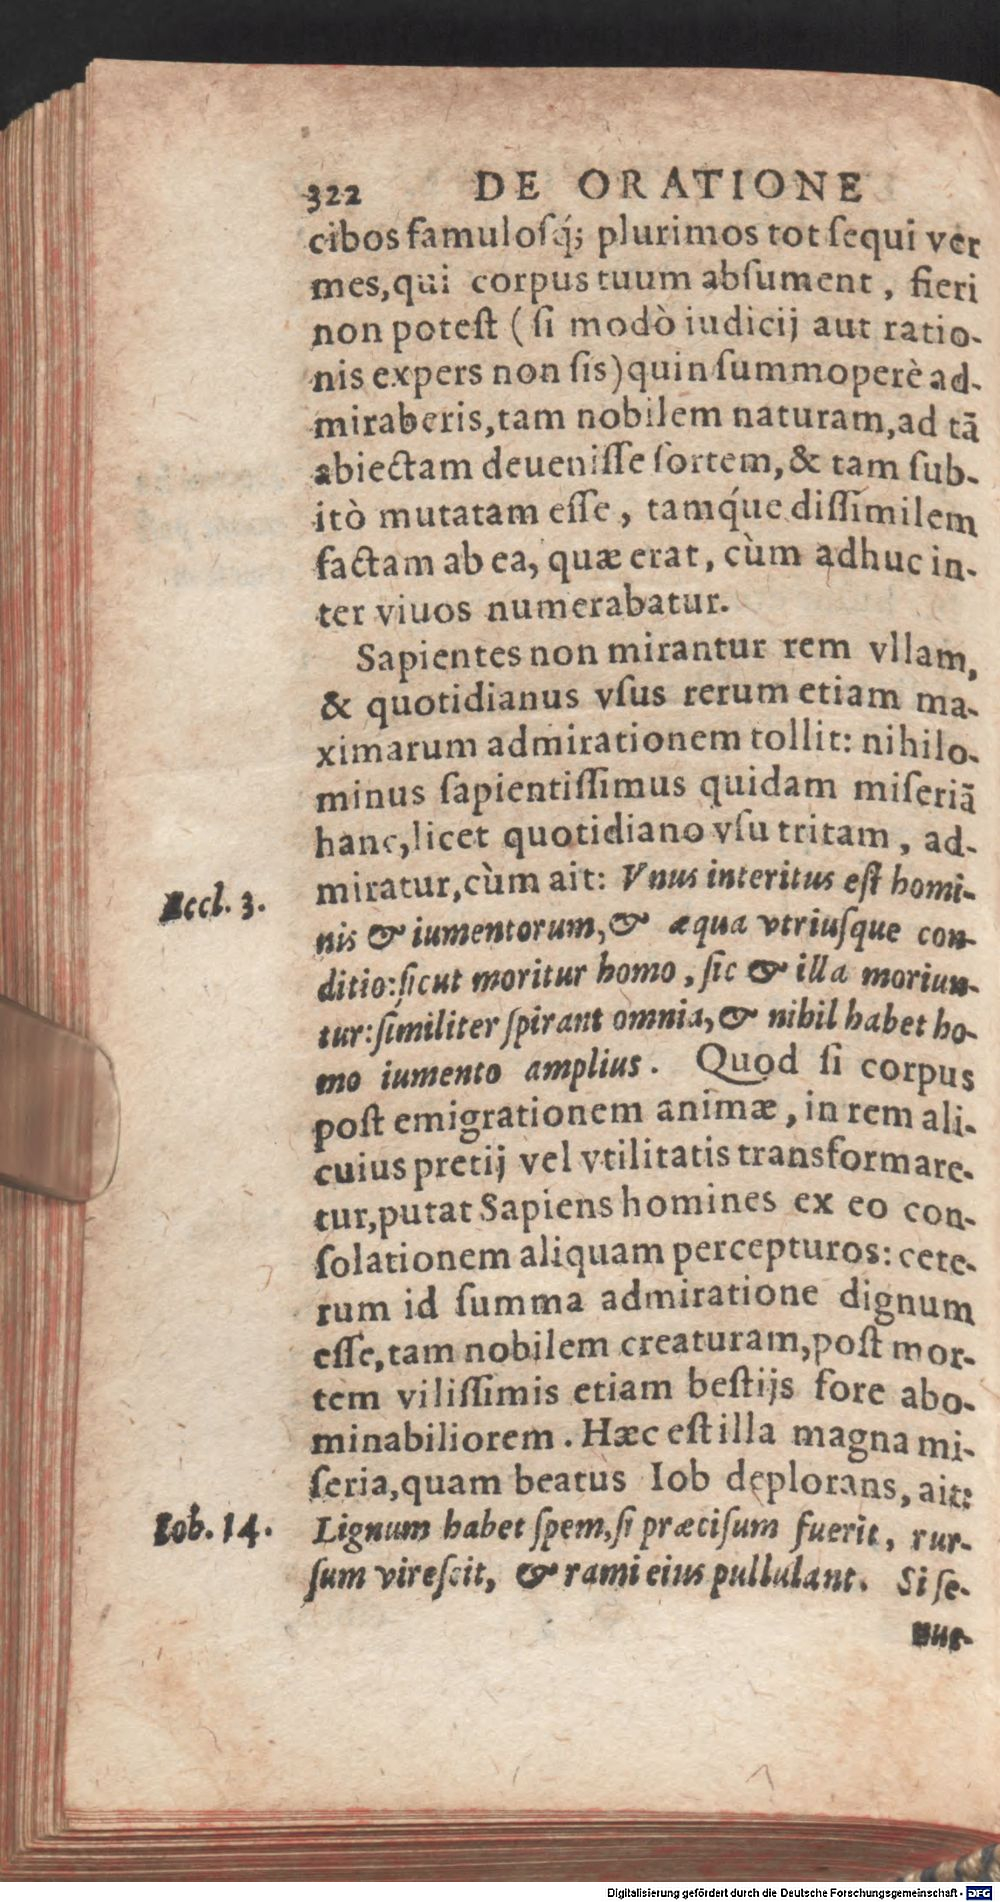 322 DE ORATIONE
cibos famuloſq́; plurimos tot ſequi ver
mes,qui corpus tuum abſument, fieri
non poteſt (ſi modò iudicij aut ratio-
nis expers non ſis)quin ſummoperè ad-
miraberis,tam nobilem naturam,ad tā
abiectam deueniſſe ſortem,& tam ſub-
itò mutatam eſſe, tamq́ue diſſimilem
factam ab ea, quæ erat, cùm adhuc in-
ter viuos numerabatur.
Sapientes non mirantur rem vllam,
& quotidianus vſus rerum etiam ma-
ximarum admirationem tollit: nihilo-
minus ſapientiſſimus quidam miſeriā
hanc,licet quotidiano vſu tritam, ad-
Eccl. 3. miratur,cùm ait: Vnus interitus eſt homi-
nis & iumentorum,& æqua vtriuſque con-
ditio:ſicut moritur homo, ſic & illa moriun-
tur:ſimiliter ſpirant omnia,& nihil habet ho-
mo iumento amplius. Quod ſi corpus
poſt emigrationem animæ, in rem ali-
cuius pretij vel vtilitatis transformare-
tur,putat Sapiens homines ex eo con-
ſolationem aliquam percepturos: cete-
rum id ſumma admiratione dignum
eſſe,tam nobilem creaturam,poſt mor-
tem viliſſimis etiam beſtijs fore abo-
minabiliorem. Hæc eſt illa magna mi-
ſeria,quam beatus Iob deplorans, ait:
Iob. 14. Lignum habet ſpem,ſi præciſum fuerit, rur-
ſum vireſcit, & rami eius pullulant. Si ſe-
nue-
Digitalisierung gefördert durch die Deutsche Forschungsgemeinschaft - DFG